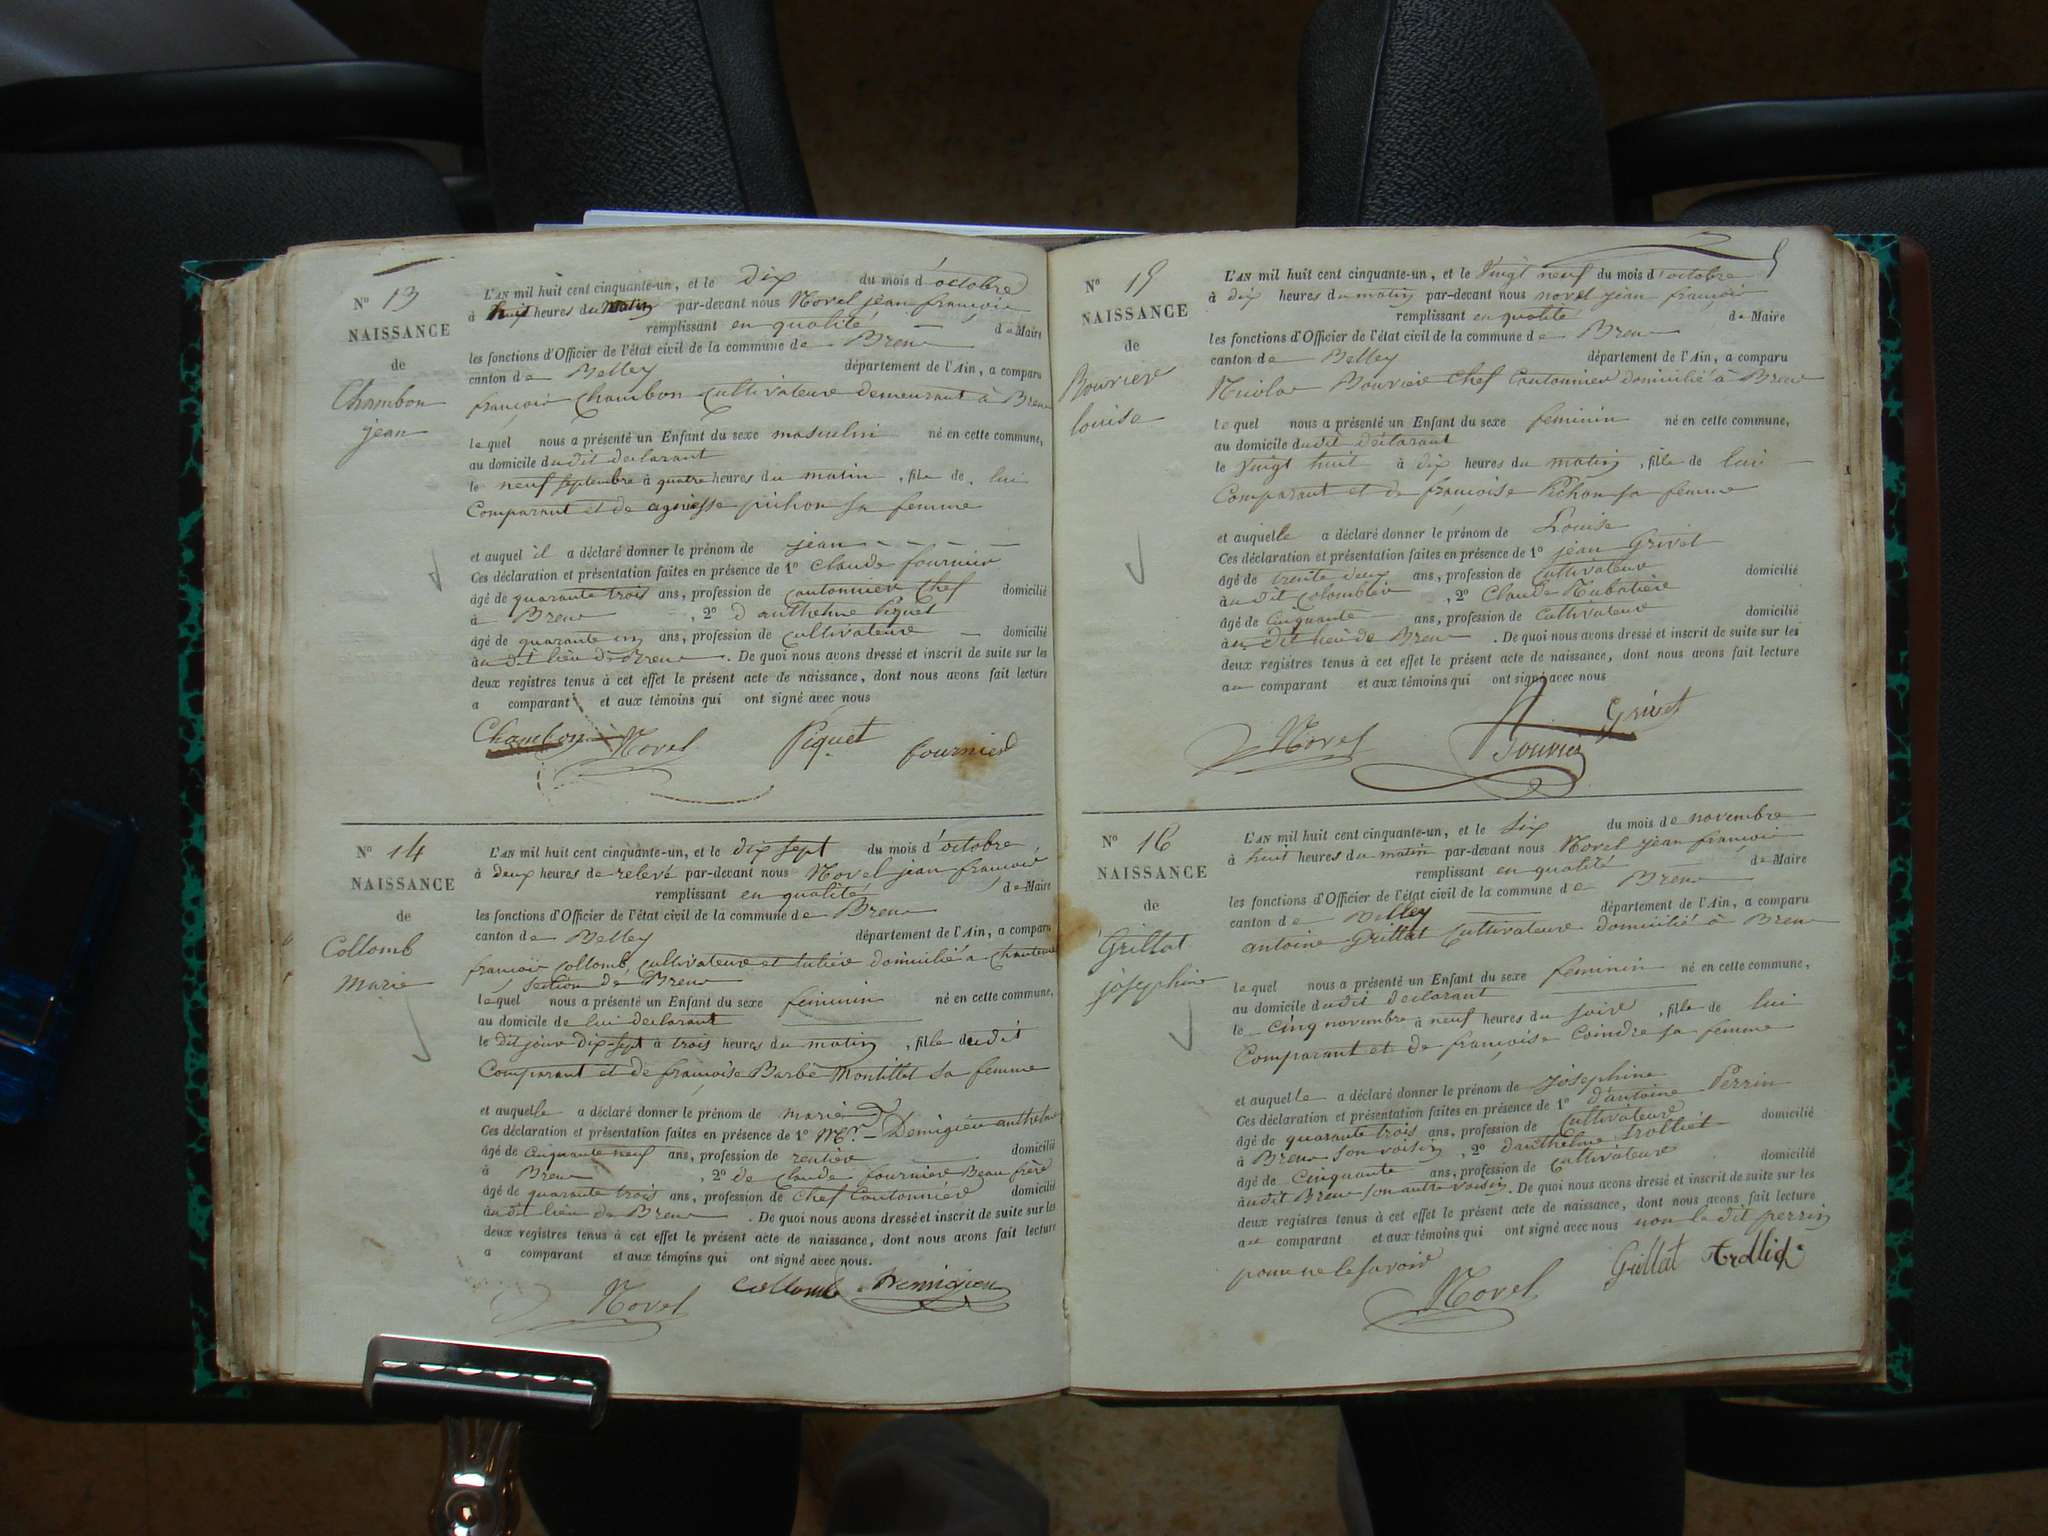 N° 13
NAISSANCE
de
Chambon
jean
L'AN mil huit cent cinquante-un, et le dix du mois d'octobre
à huit heures du matin par-devant nous Novel jean françois
remplissant en qualité de Maire
les fonctions d'Officier de l'état civil de la commune de Bren
canton de Belley département de l'Ain, a comparu
françois Chambon Cultivateur demeurant à Bren
lequel nous a présenté un Enfant du sexe masculin né en cette commune,
au domicile dudit declarant
le neuf septembre à quatre heures du matin, fils de lui
Comparant et de agniesse pichon sa femme
et auquel il a déclaré donner le prénom de jean
Ces déclaration et présentation faites en présence de 1° Claude fournier
âgé de quarante trois ans, profession de cautonnier Chef domicilié
à Bren, 2° d'anthelme Piquet
âgé de quarante un ans, profession de cultivateure domicilié
àudit lieu de Bren. De quoi nous avons dressé et inscrit de suite sur les
deux registres tenus à cet effet le présent acte de naissance, dont nous avons fait lecture
a comparant et aux témoins qui ont signé avec nous
Chambon Novel Piquet fournier
N° 14
NAISSANCE
de
Collomb
Marie
L'AN mil huit cent cinquante-un, et le dix sept du mois d'octobre,
à deux heures de relevé par-devant nous Novel jean françois
remplissant en qualité de Maire
les fonctions d'Officier de l'état civil de la commune de Bren
canton de Belley département de l'Ain, a comparu
françois Collomb, cultivateure et domicilié a
section de Bren
lequel nous a présenté un Enfant du sexe feminin né en cette commune,
au domicile de lui declarant
le dit jour dix-sept à trois heures du matin, fille dudit
Comparant et de françoise Barbe Montillet sa femme
et auquelle a déclaré donner le prénom de marie
Ces déclaration et présentation faites en présence de 1° Mr. Demigieu anthelme
âgé de cinquante neuf ans, profession de rentière domicilié
à Bren, 2° de Claude fournière Beau frère
âgé de quarante trois ans, profession de chef Cautonnier domicilié
àudit lieu de Bren. De quoi nous avons dressé et inscrit de suite sur les
deux registres tenus à cet effet le présent acte de naissance, dont nous avons fait lecture
a comparant et aux témoins qui ont signé avec nous.
Novel Collomb Demigieu
N° 15
NAISSANCE
de
Bouvier
louise
L'AN mil huit cent cinquante-un, et le vingt neuf du mois d'octobre
à dix heures du matin par-devant nous novel jean françois
remplissant en qualité de Maire
les fonctions d'Officier de l'état civil de la commune de Bren
canton de Belley département de l'Ain, a comparu
Nicolas Bouvier chef Cautonnier domicilié à Bren
lequel nous a présenté un Enfant du sexe feminin né en cette commune,
au domicile dudit déclarant
le vingt huit à dix heures du matin, fille de lui
Comparant et de françoise Pichon sa femme
et auquelle a déclaré donner le prénom de Louise
Ces déclaration et présentation faites en présence de 1° jean Grivet
âgé de trente deux ans, profession de cultivateur domicilié
àudit Colombier, 2° Claude Rubatière
âgé de cinquante ans, profession de cultivateure domicilié
àudit lieu de Bren. De quoi nous avons dressé et inscrit de suite sur les
deux registres tenus à cet effet le présent acte de naissance, dont nous avons fait lecture
au comparant et aux témoins qui ont signé avec nous
Novel Bouvier Grivet
N° 16
NAISSANCE
de
Grillat
josephine
L'AN mil huit cent cinquante-un, et le six du mois de novembre
à huit heures du matin par-devant nous Novel jean françois
remplissant en qualité de Maire
les fonctions d'Officier de l'état civil de la commune de Bren
canton de Belley département de l'Ain, a comparu
antoine Grillat Cultivateure domicilié à Bren
lequel nous a présenté un Enfant du sexe feminin né en cette commune,
au domicile dudit declarant
le cinq novembre à neuf heures du soire, fille de lui
Comparant et de françoise Coindre sa femme
et auquelle a déclaré donner le prénom de josephine
Ces déclaration et présentation faites en présence de 1° d'antoine Perrin
âgé de quarante trois ans, profession de cultivateure domicilié
à Bren son voisin, 2° d'anthelme trolliet
âgé de cinquante ans, profession de cultivateure domicilié
àudit Bren son autre voisin. De quoi nous avons dressé et inscrit de suite sur les
deux registres tenus à cet effet le présent acte de naissance, dont nous avons fait lecture
au comparant et aux témoins qui ont signé avec nous non le dit perrin
pour ne le savoir
Novel Grillat